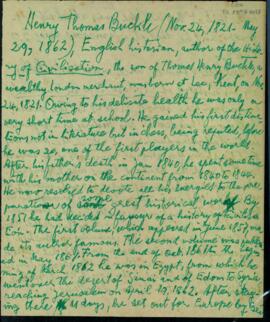 Henry Thomas Buckle (Nov. 24, 1821. May
29, 1862) English historian, author of the Hist
ry of Civilisation, the son of Thomas Henry Buckle, a
wealthy London merchant, was born at Lee, Kent, on Nov.
24, 1821. Owing to his delicate health he was only a
very short time at school. He gained his first distinc
tions not in literature but in chess, being reputed, before
he was 20, one of the first players in the world.
After his father's death in Jan 1840, he spent some time
with his mother on the continent from 1840 to 1844.
He now resolved to devote all his energies to the pre-
paration of some great historical work. By
1851 he had decided in favour of a history of civilisat
ion. The first volume, which appeared in June 1857, ma
de its author famous. The second volume was publish
ed in May 1861. From the end of Oct. 1861 to the begin
ning of March 1862 he was in Egypt, from which he
went over the desert of Sinai and of Edom to Syria,
reaching Jerusalem on April 19, 1862. After stay
ing there 11 days, he set out for Europe by